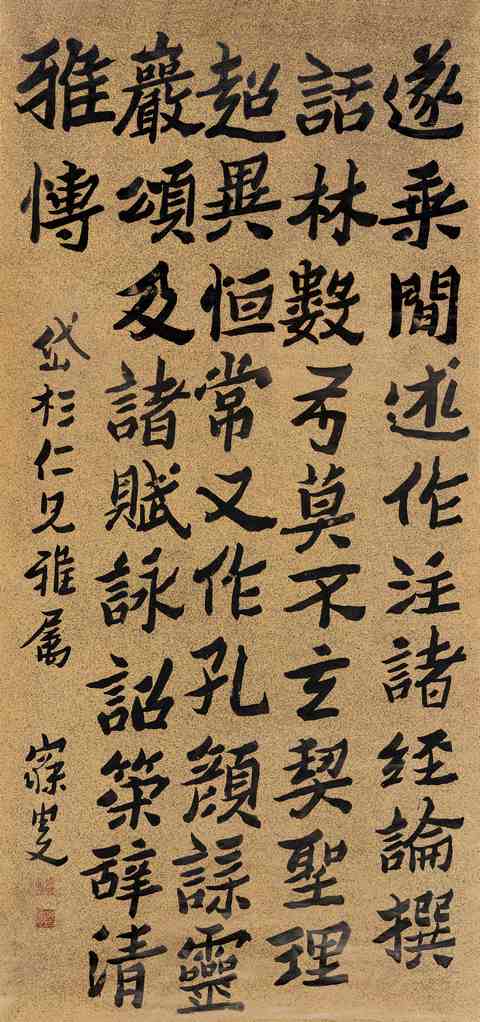 遂乗間述作注諸経論撰
話林數弓莫不玄契聖理
超異恒常又作孔顏誄靈
巖頌及諸賦詠詔策辭清
雅博
岱杉仁兄雅属
寐叟